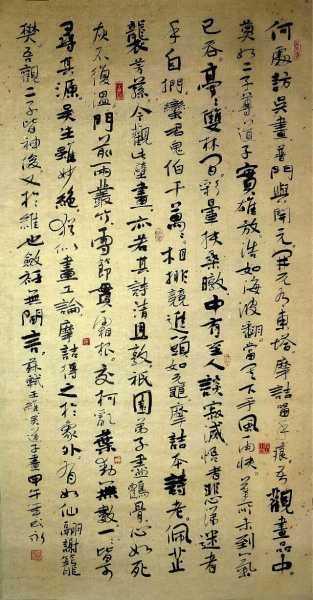 何處訪吳畫普門與開元開元有東塔摩詰留手痕吾觀畫品中
莫如二子尊道子實雄放浩如海波翻當其下手風雨快筆所未到氣
已吞亭亭雙林間彩暈扶桑暾中有至人談寂滅悟者悲涕迷者
手自捫蠻君鬼伯千萬萬相排競進頭如黿摩詰本詩老佩芷
襲芳蓀今觀此壁畫亦若其詩清且敦祇園弟子盡鶴骨心如死
灰不復溫門前兩叢竹雪節貫霜根交柯亂葉動無數一一皆可
尋其源吳生雖妙絕猶以畫工論摩詰得之於象外有如仙翮謝籠
樊吾觀二子皆神俊又於維也斂衽無間言蘇軾王維吳道子畫甲午